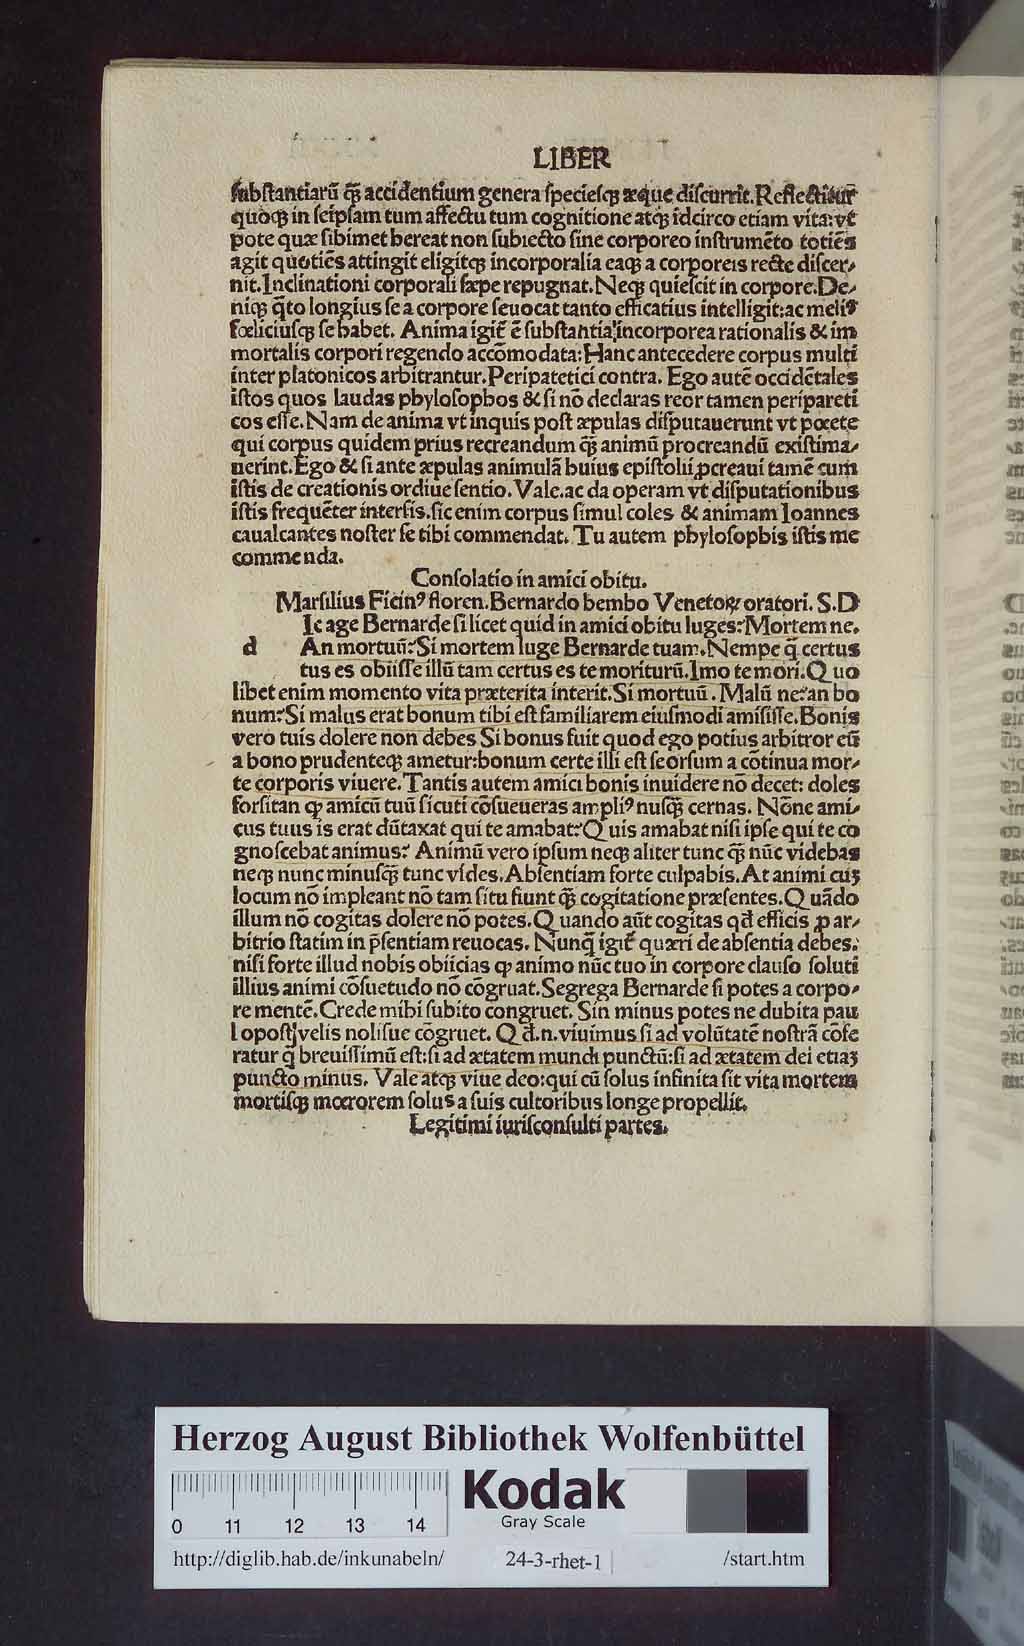 LIBER
substantiarū q̄ꝫ accidentium genera speciesqꝫ æque discurrit. Reflectitur̄
quoqꝫ in seipsam tum affectu tum cognitione atqꝫ idcirco etiam vita: vt
pote quæ sibimet hereat non subiecto sine corporeo instrumēto totiēs
agit quotiēs attingit eligitqꝫ incorporalia eaqꝫ a corporeis recte discer-
nit. Inclinationi corporali sæpe repugnat. Neqꝫ quiescit in corpore. De-
niqꝫ q̄to longius se a corpore seuocat tanto efficatius intelligit: ac meliꝰ
fœliciusqꝫ se habet. Anima igit̄ ē substantia incorporea rationalis & im
mortalis corpori regendo accōmodata: Hanc antecedere corpus multi
inter platonicos arbitrantur. Peripatetici contra. Ego autē occidētales
istos quos laudas phylosophos & si nō declaras reor tamen peripareti
cos esse. Nam de anima vt inquis post æpulas disputauerunt vt pœte
qui corpus quidem prius recreandum q̄ꝫ animū procreandū existima-
uerint. Ego & si ante æpulas animulā huius epistolii ꝓcreaui tamē cum
istis de creationis ordiue sentio. Vale. ac da operam vt disputationibus
istis frequēter intersis. sic enim corpus simul coles & animam Ioannes
caualcantes noster se tibi commendat. Tu autem phylosophis istis me
commenda.
Consolatio in amici obitu.
Marsilius Ficinꝰ floren. Bernardo bembo Venetoꝝ oratori. S. D
Ic age Bernarde si licet quid in amici obitu luges: Mortem ne.
d An mortuū: Si mortem luge Bernarde tuam. Nempe q̄ certus
tus es obiisse illū tam certus es te moriturū. Imo te mori. Quo
libet enim momento vita præterita interit. Si mortuū. Malū ne: an bo
num: Si malus erat bonum tibi est familiarem eiusmodi amisisse. Bonis
vero tuis dolere non debes Si bonus fuit quod ego potius arbitror eū
a bono prudenteqꝫ ametur: bonum certe illi est seorsum a cōtinua mor-
te corporis viuere. Tantis autem amici bonis inuidere nō decet: doles
forsitan ꝙ amicū tuū sicuti cōsueueras ampliꝰ nusq̄ꝫ cernas. Nōne ami-
cus tuus is erat dūtaxat qui te amabat: Quis amabat nisi ipse qui te co
gnoscebat animus: Animū vero ipsum neqꝫ aliter tunc q̄ꝫ nūc videbas
neqꝫ nunc minusq̄ꝫ tunc vides. Absentiam forte culpabis. At animi cuꝫ
locum nō impleant nō tam situ fiunt q̄ꝫ cogitatione præsentes. Quādo
illum nō cogitas dolere nō potes. Quando aūt cogitas qd̄ efficis ꝓ ar-
bitrio statim in p̄sentiam reuocas. Nunq̄ igit̄ quæri de absentia debes.
nisi forte illud nobis obiicias ꝙ animo nūc tuo in corpore clauso soluti
illius animi cōsuetudo nō cōgruat. Segrega Bernarde si potes a corpo-
re mentē. Crede mihi subito congruet. Sin minus potes ne dubita pau
lopostqꝫ velis nolisue cōgruet. Qd̄. n. viuimus si ad volūtatē nostrā cōfe
ratur q̄ breuissimū est: si ad ætatem mundi punctū: si ad ætatem dei etiaꝫ
puncto minus. Vale atqꝫ viue deo: qui cū solus infinita sit vita mortem
mortisqꝫ mœrorem solus a suis cultoribus longe propellit.
Legitimi iurisconsulti partes.
Herzog August Bibliothek Wolfenbüttel
Kodak
Gray Scale
0 11 12 13 14
http://diglib.hab.de/inkunabeln/ 24-3-rhet-1 /start.htm